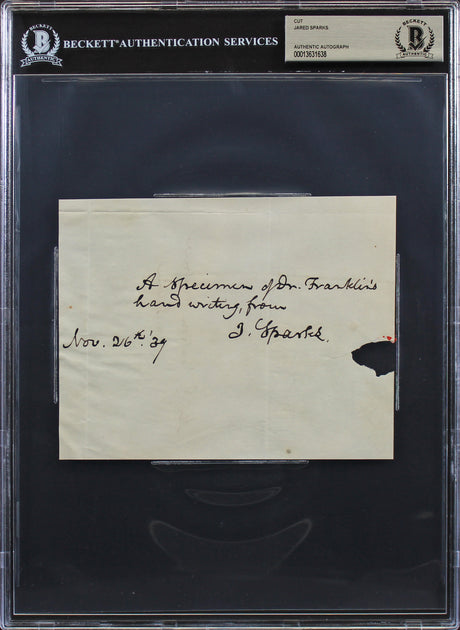 BECKETT
B
AUTHENTIC
BECKETT® AUTHENTICATION SERVICES
CUT
JARED SPARKS
AUTHENTIC AUTOGRAPH
00013631638
BECKETT
B
AUTHENTIC
A Specimen of Dr. Franklin's
hand writing, from
J. Sparks.
Nov. 26th. '39